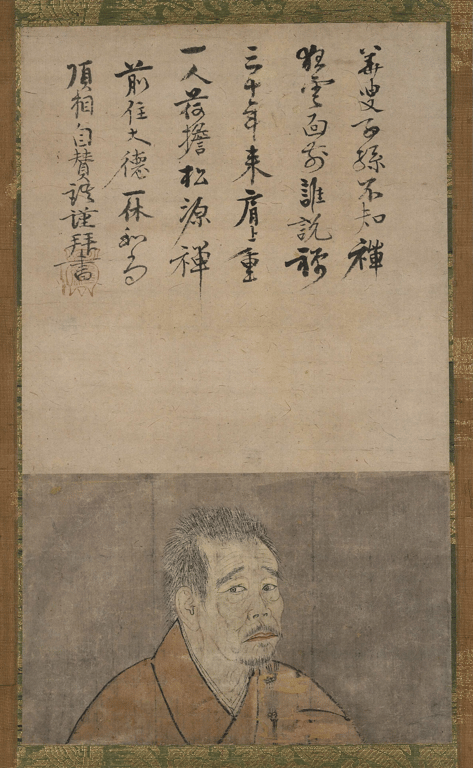 華叟子孫不知禪
狂雲面前誰説禅
三十年来肩上重
一人荷擔松源禪
前住大德一休和尚
頂相自賛謹拜書